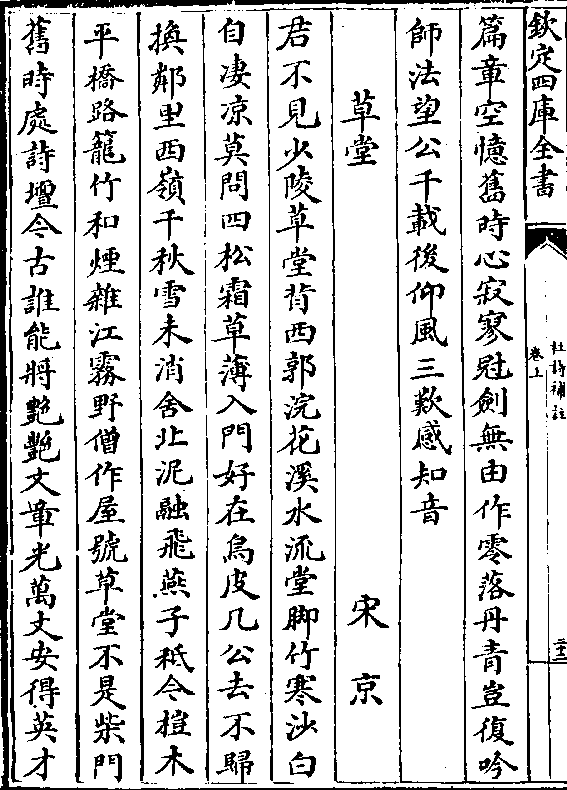 欽定四庫全書
杜詩補註
卷上
篇章空憶舊時心寂寥冠劍無由作零落丹青豈復吟
師法望公千載後仰風三歎感知音
草堂 宋京
君不見少陵草堂背西郭浣花溪水流堂脚竹寒沙白
自凄凉莫問四松霜草薄入門好在烏皮几公去不歸
換鄰里西嶺千秋雪未消舍北泥融飛燕子秪今榿木
平橋路籠竹和煙雜江霧野僧作屋號草堂不是柴門
舊時處詩壇今古誰能將艷艷文章光萬丈安得英才